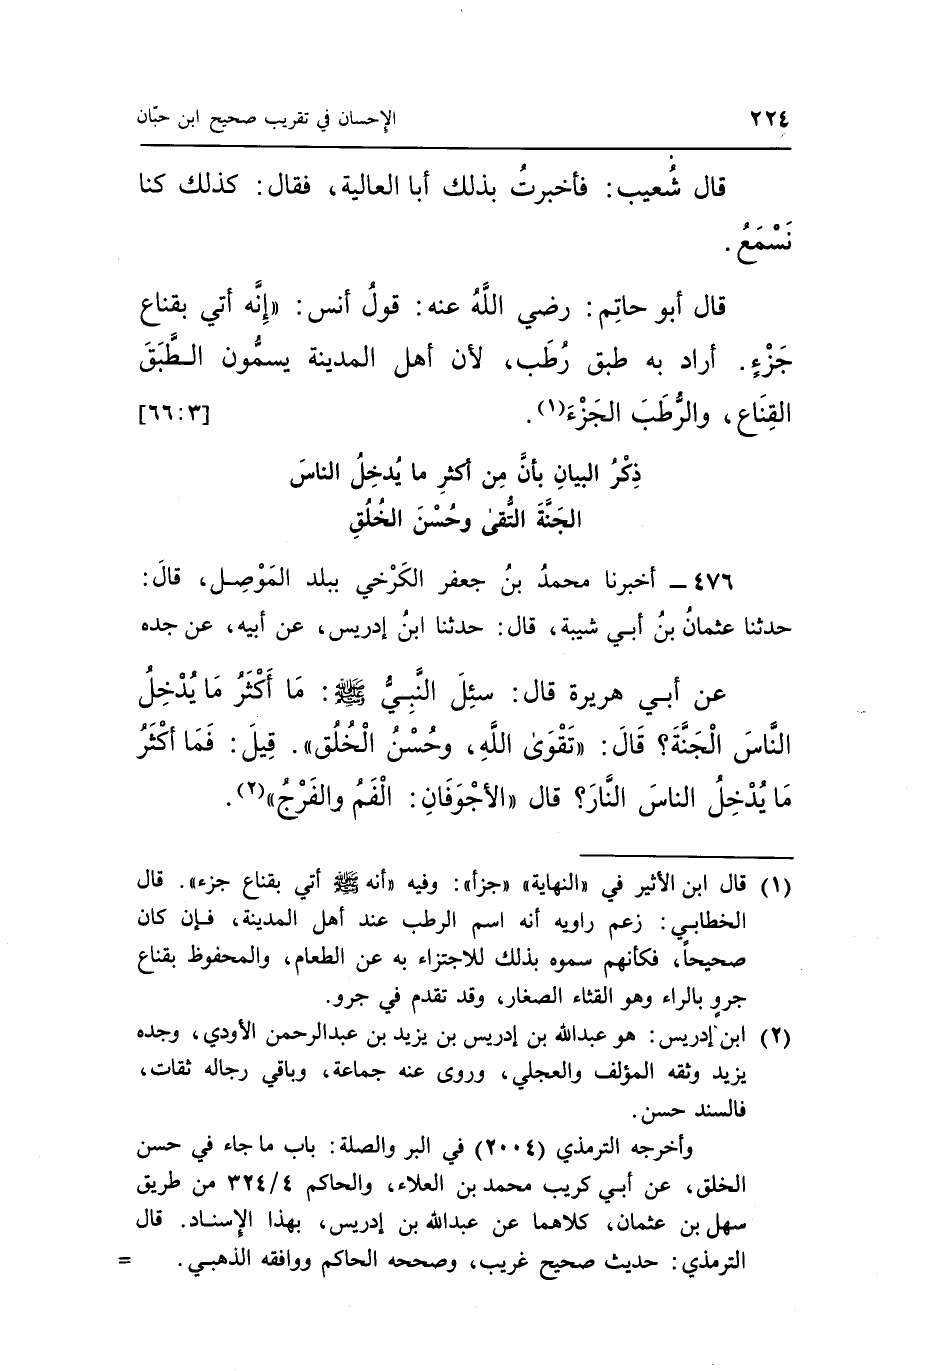 ٢٢٤ الإحسان في تقريب صحيح ابن حبّان
قال شُعيب: فأخبرتُ بذلك أبا العالية، فقال: كذلك كنا
نَسْمَعُ.
قال أبو حاتِم: رضي اللَّهُ عنه: قولُ أنس: «إِنَّه أتي بقناع
جَزْءٍ. أراد به طبق رُطَب، لأن أهل المدينة يسمُّون الطَّبَقَ
القِنَاع، والرُّطَبَ الجَزْءَ(١). [٦٦:٣]
ذِكْرُ البيانِ بأنَّ مِن أكثرِ ما يُدخِلُ الناسَ
الجَنَّةَ التُّقىٰ وحُسْنَ الخُلُقِ
٤٧٦ ــ أخبرنا محمدُ بنُ جعفر الكَرْخي ببلد المَوْصِل، قالَ:
حدثنا عثمانُ بنُ أبي شيبة، قال: حدثنا ابنُ إدريس، عن أبيه، عن جده
عن أبي هريرة قال: سئِلَ النَّبِيُّ ﷺ: مَا أَكْثَرُ مَا يُدْخِلُ
النَّاسَ الْجَنَّةَ؟ قَالَ: «تَقْوَىٰ اللَّهِ، وحُسْنُ الْخُلُق». قِيلَ: فَمَا أكْثَرُ
مَا يُدْخِلُ الناسَ النَّارَ؟ قال «الأجْوَفَانِ: الْفَمُ والفَرْجُ»(٢).
(١) قال ابن الأثير في «النهاية» «جزأ»: وفيه «أنه ﷺ أتي بقناع جزء». قال
الخطابي: زعم راويه أنه اسم الرطب عند أهل المدينة، فإن كان
صحيحاً، فكأنهم سموه بذلك للاجتزاء به عن الطعام، والمحفوظ بقناع
جروٍ بالراء وهو القثاء الصغار، وقد تقدم في جرو.
(٢) ابن إدريس: هو عبدالله بن إدريس بن يزيد بن عبدالرحمن الأودي، وجده
يزيد وثقه المؤلف والعجلي، وروى عنه جماعة، وباقي رجاله ثقات،
فالسند حسن.
وأخرجه الترمذي (٢٠٠٤) في البر والصلة: باب ما جاء في حسن
الخلق، عن أبي كريب محمد بن العلاء، والحاكم ٣٢٤/٤ من طريق
سهل بن عثمان، كلاهما عن عبدالله بن إدريس، بهذا الإسناد. قال
الترمذي: حديث صحيح غريب، وصححه الحاكم ووافقه الذهبي. =